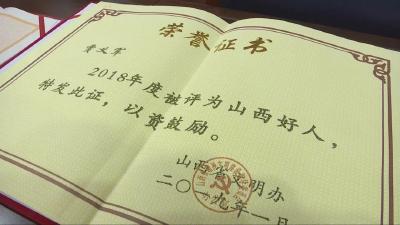 荣誉证书
贾义军
2018年度被评为山西好人，
特发此证，以资鼓励。
山西省文明办
二〇一九年一月